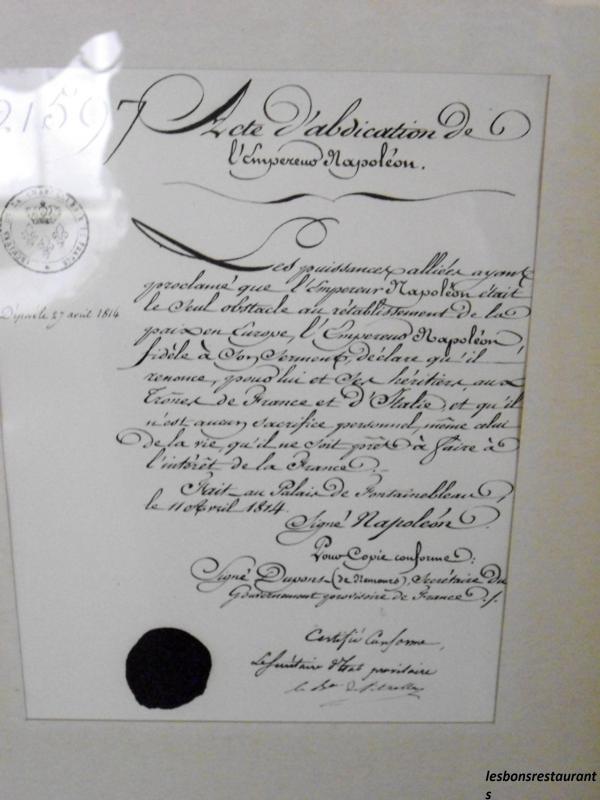 21597
Acte d'abdication de
l'Empereur Napoléon.
Les puissances alliées ayant
proclamé que l'Empereur Napoléon était
le Seul obstacle au rétablissement de la
Déposé le 27 avril 1814
paix en Europe, l'Empereur Napoléon
fidèle à Son Serment, déclare qu'il
renonce, pour lui et Ses héritiers, aux
Trônes de France et d'Italie, et qu'il
n'est aucun sacrifice personnel, même celui
de la vie, qu'il ne soit prêt à faire à
l'intérêt de la France.
Fait au Palais de Fontainebleau,
le 11 Avril 1814.
Signé Napoléon.
Pour Copie conforme:
Signé Dupont (de Nemours), Secrétaire Du
Gouvernement provisoire de France ./.
Certifié Conforme,
Le Secrétaire d'Etat provisoire
le Bon de
lesbonsrestaurant
s